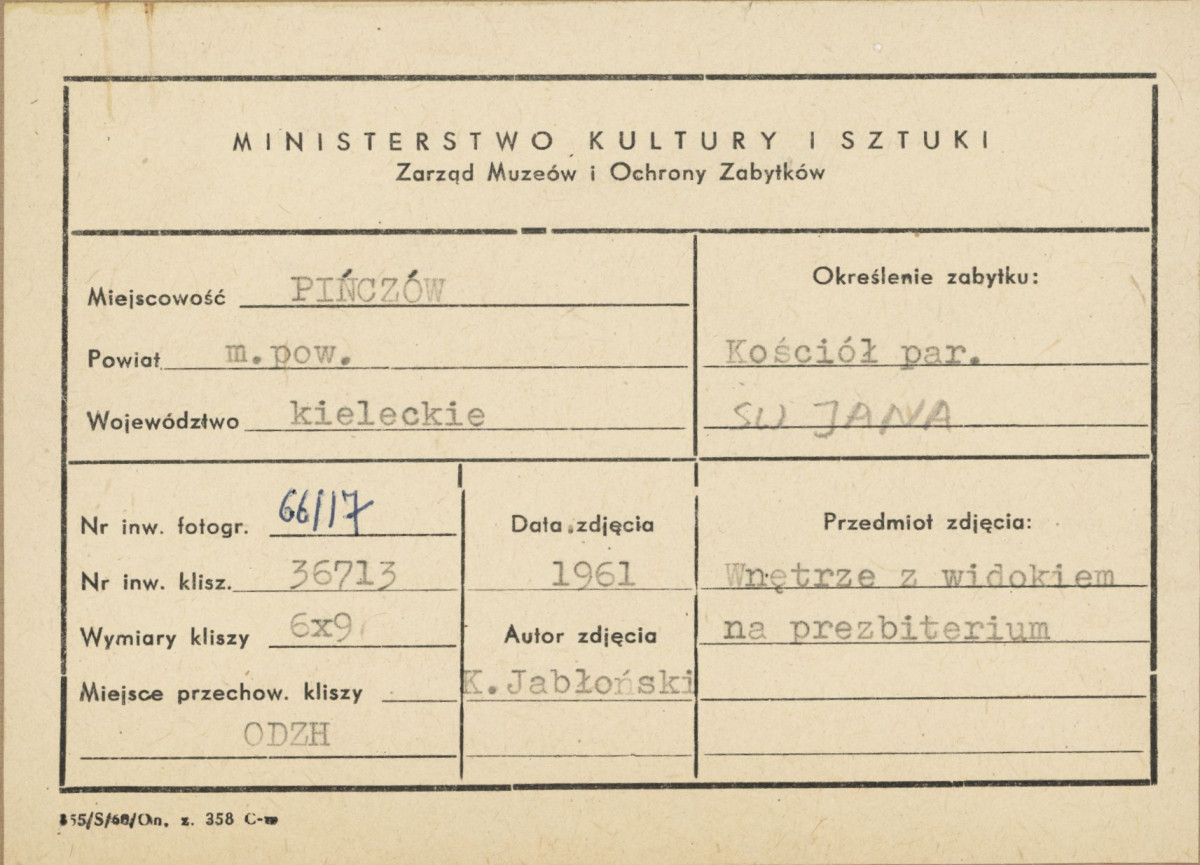 MINISTERSTWO KULTURY I SZTUKI
Zarząd Muzeów i Ochrony Zabytków
Miejscowość PIŃCZÓW
Powiat m.pow.
Województwo kieleckie
Określenie zabytku:
Kościół par.
SW JANA
Nr inw. fotogr. 66/17
Nr inw. klisz. 36713
Wymiary kliszy 6x9
Miejsce przechow. kliszy
ODZH
Data zdjęcia
1961
Autor zdjęcia
K.Jabłoński
Przedmiot zdjęcia:
Wnętrze z widokiem
na prezbiterium
z. 358